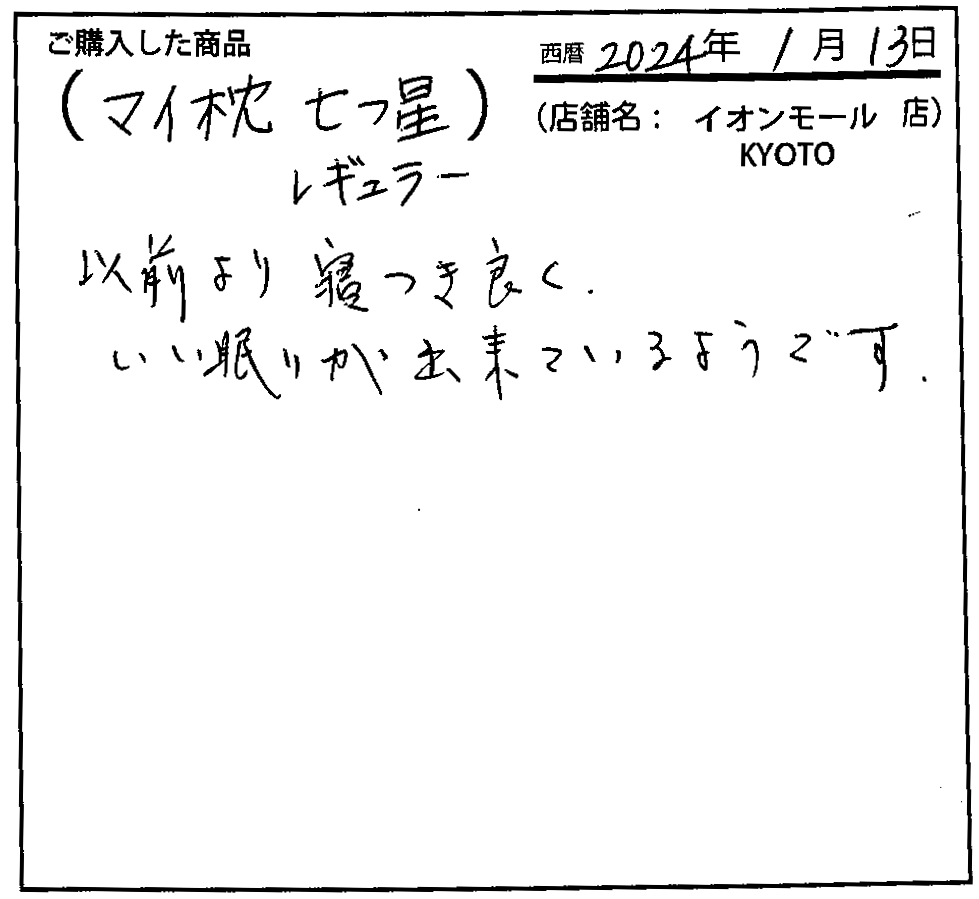 ご購入した商品
西暦 2024年 1月 13日
(マイ枕 七つ星)
(店舗名: イオンモール 店)
KYOTO
レギュラー
以前より寝つき良く.
いい眠りが出来ているようです.